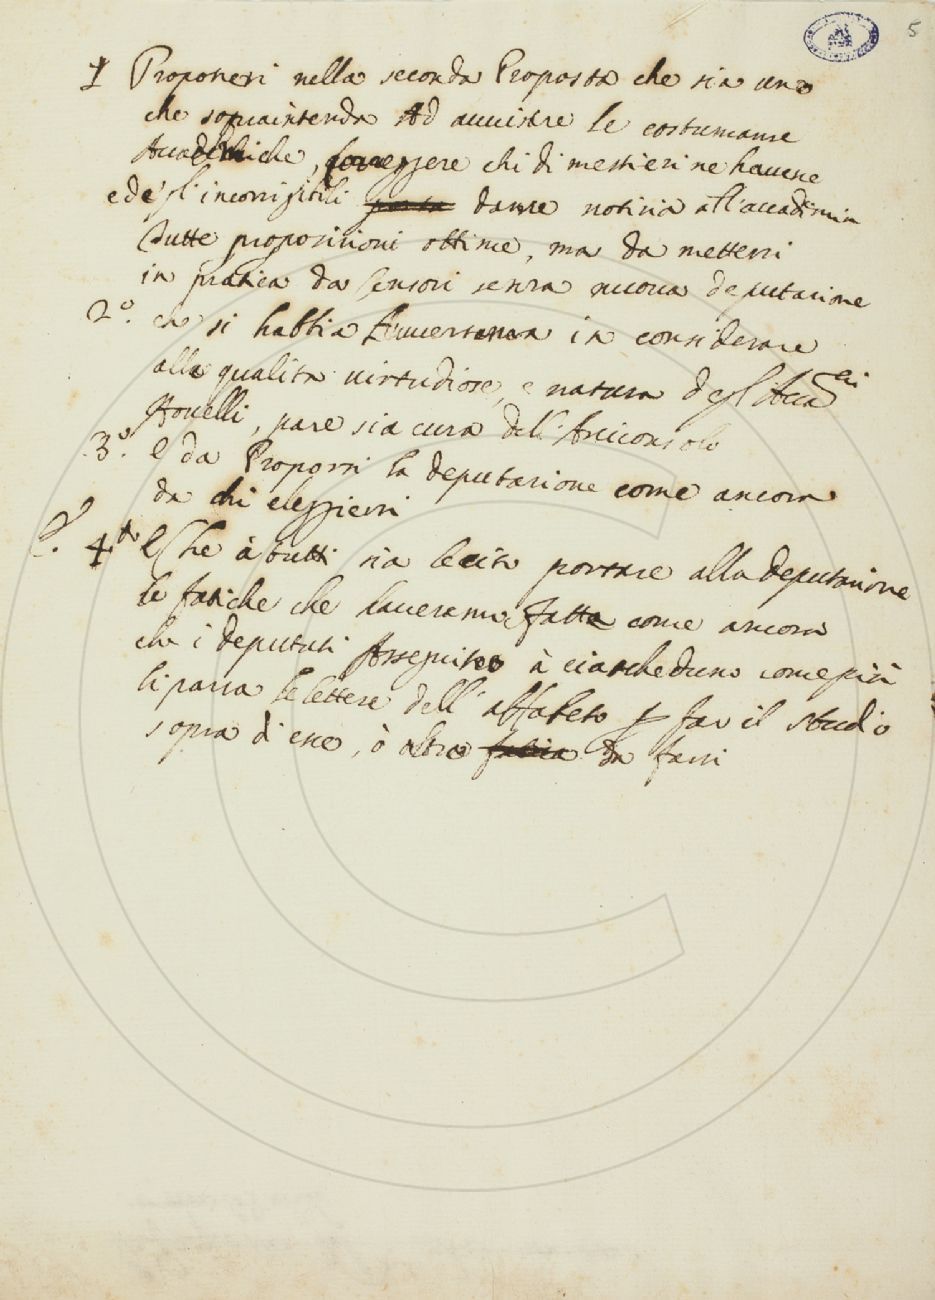 5
1 Proponesi nella seconda Proposta che sia uno
che sopraintenda ad auuisare le costumanze
Accademiche, correggere chi di mestieri ne hauesse
e degl'incorrigibili darne notizia all'accademia
Tutte proposizioni ottime, ma da mettersi
in pratica da Censori senza nuoua deputazione
2º. che si habbia Auuertenza in considerare
alle qualità uirtudiose, e natura degl'Accaci
Nouelli, pare sia cura dell'Arciconsolo
3º. E da Proporsi la deputazione come ancora
da chi eleggiersi
4to E Che à tutti sia lecito portare alla deputazione
le fatiche che haueranno fatte come ancora
che i deputati à ciascheduno come più
li parrà le lettere dell'alfabeto p far il studio
sopra d'esse, ò altro da farsi